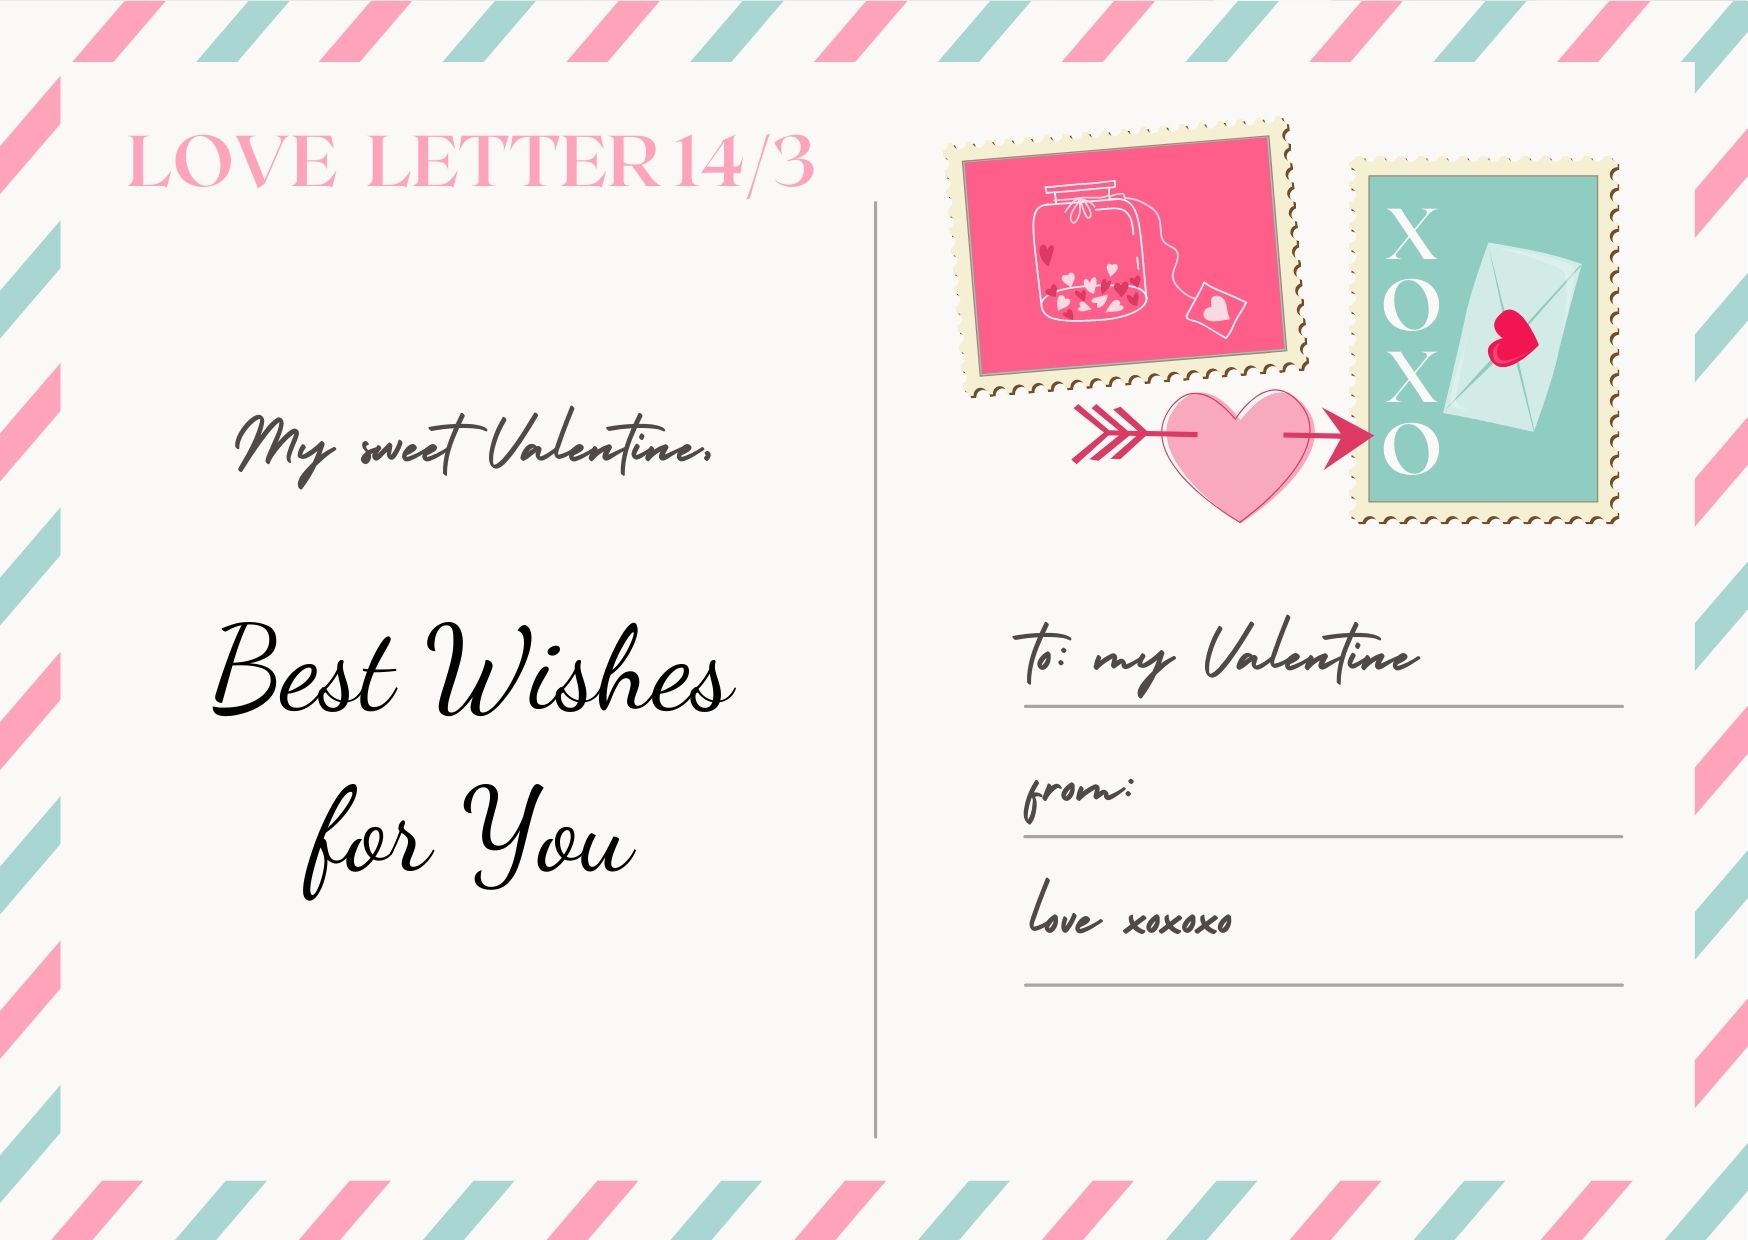 LOVE LETTER 14/3
My sweet Valentine,
Best Wishes
for You
X
O
X
O
to: my Valentine
from:
love xoxoxo